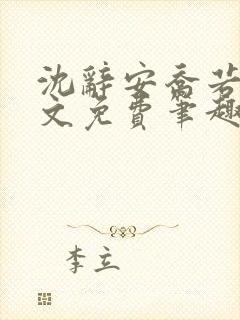 沈辭安喬若
文免費筆趣
李立